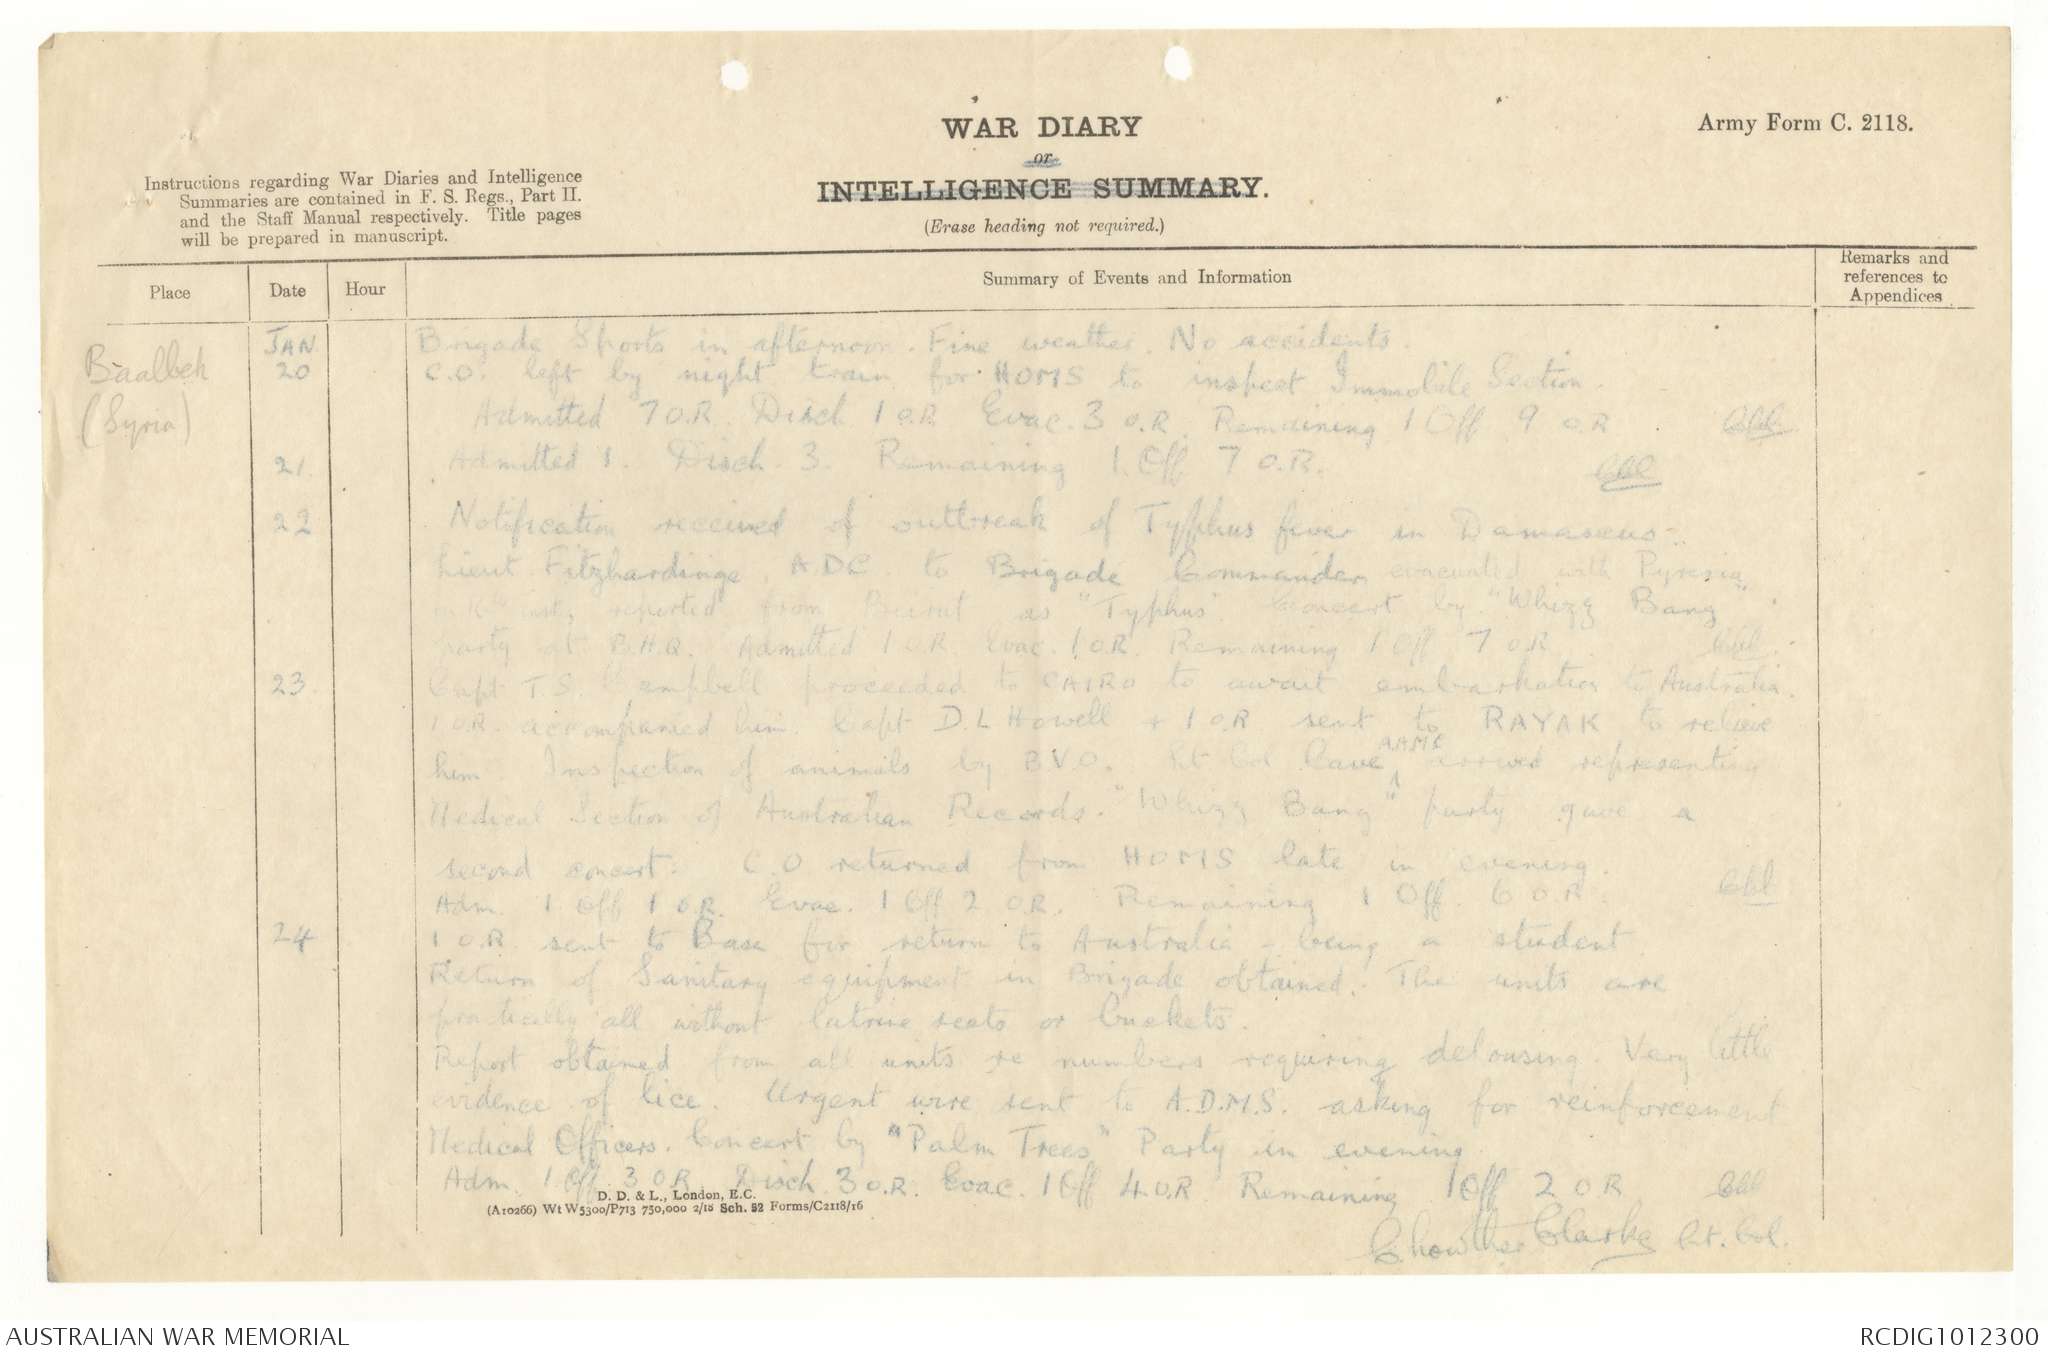 WAR DIARY
or
INTELLIGENCE SUMMARY.
(Erase heading not required.)
Army Form C. 2118.
Instructions regarding War Diaries and Intelligence
Summaries are contained in F. S. Regs., Part II.
and the Staff Manual respectively. Title pages
will be prepared in manuscript.
Place
Date
Hour
Summary of Events and Information
Remarks and
references to
Appendices
Baalbek
(Syria)
JAN
20
Brigade Sports in afternoon. Fine weather. No accidents.
C.O. left by night train for HOMS to inspect Immobile Section.
Admitted 7 O.R. Disch 1 O.R. Evac. 3 O.R. Remaining 1 Off 9 O.R.
21.
Admitted 1. Disch. 3. Remaining 1. Off 7 O.R.
22
Notification received of outbreak of Typhus fever in Damascus -
Lieut Fitzhardinge, ADC to Brigade Commander evacuated with Pyrexia
inst, reported from Beirut as "Typhus" Concert by "Whizz Bang"
party at B.H.Q. Admitted 1 O.R. Evac. 1 O.R. Remaining 1 Off 7 O.R.
23.
Capt T.S. Campbell proceeded to CAIRO to await embarkation to Australia.
1 O.R. accompanied him. Capt D.L Howell + 1 O.R. sent to RAYAK to relieve
him. Inspection of animals by B.V.O. Lt Col Cave, AAMC arrived representing
Medical Section of Australian Records. "Whizz Bang" party gave a
second concert. C.O returned from HOMS late in evening.
Adm. 1 Off 1 O.R. Evac. 1 Off 2 O.R. Remaining 1 Off. 6 O.R.
24
1 O.R. sent to Base for return to Australia - being a student
Return of Sanitary equipment in Brigade obtained. The units are
practically all without latrine seats or buckets.
Report obtained from all units re numbers requiring delousing. Very little
evidence of lice. Urgent wire sent to A.D.M.S. asking for reinforcement
Medical Officers. Concert by "Palm Trees" Party in evening
Adm. 1 Off. 3 O.R. Disch. 3 O.R. Evac. 1 Off 4 O.R. Remaining 1 Off 2 O.R.
Clarke Lt. Col.
D. D. & L., London, E.C.
(A10266) Wt W5300/P713 750,000 2/18 Sch. 52 Forms/C2118/16
AUSTRALIAN WAR MEMORIAL
RCDIG1012300